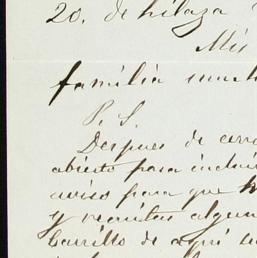 20. de hilaza
Mis
familia much
P. S.
Despues de cerra
abierto para incluir
aviso para que
y remitas algun
barrillo de aqui